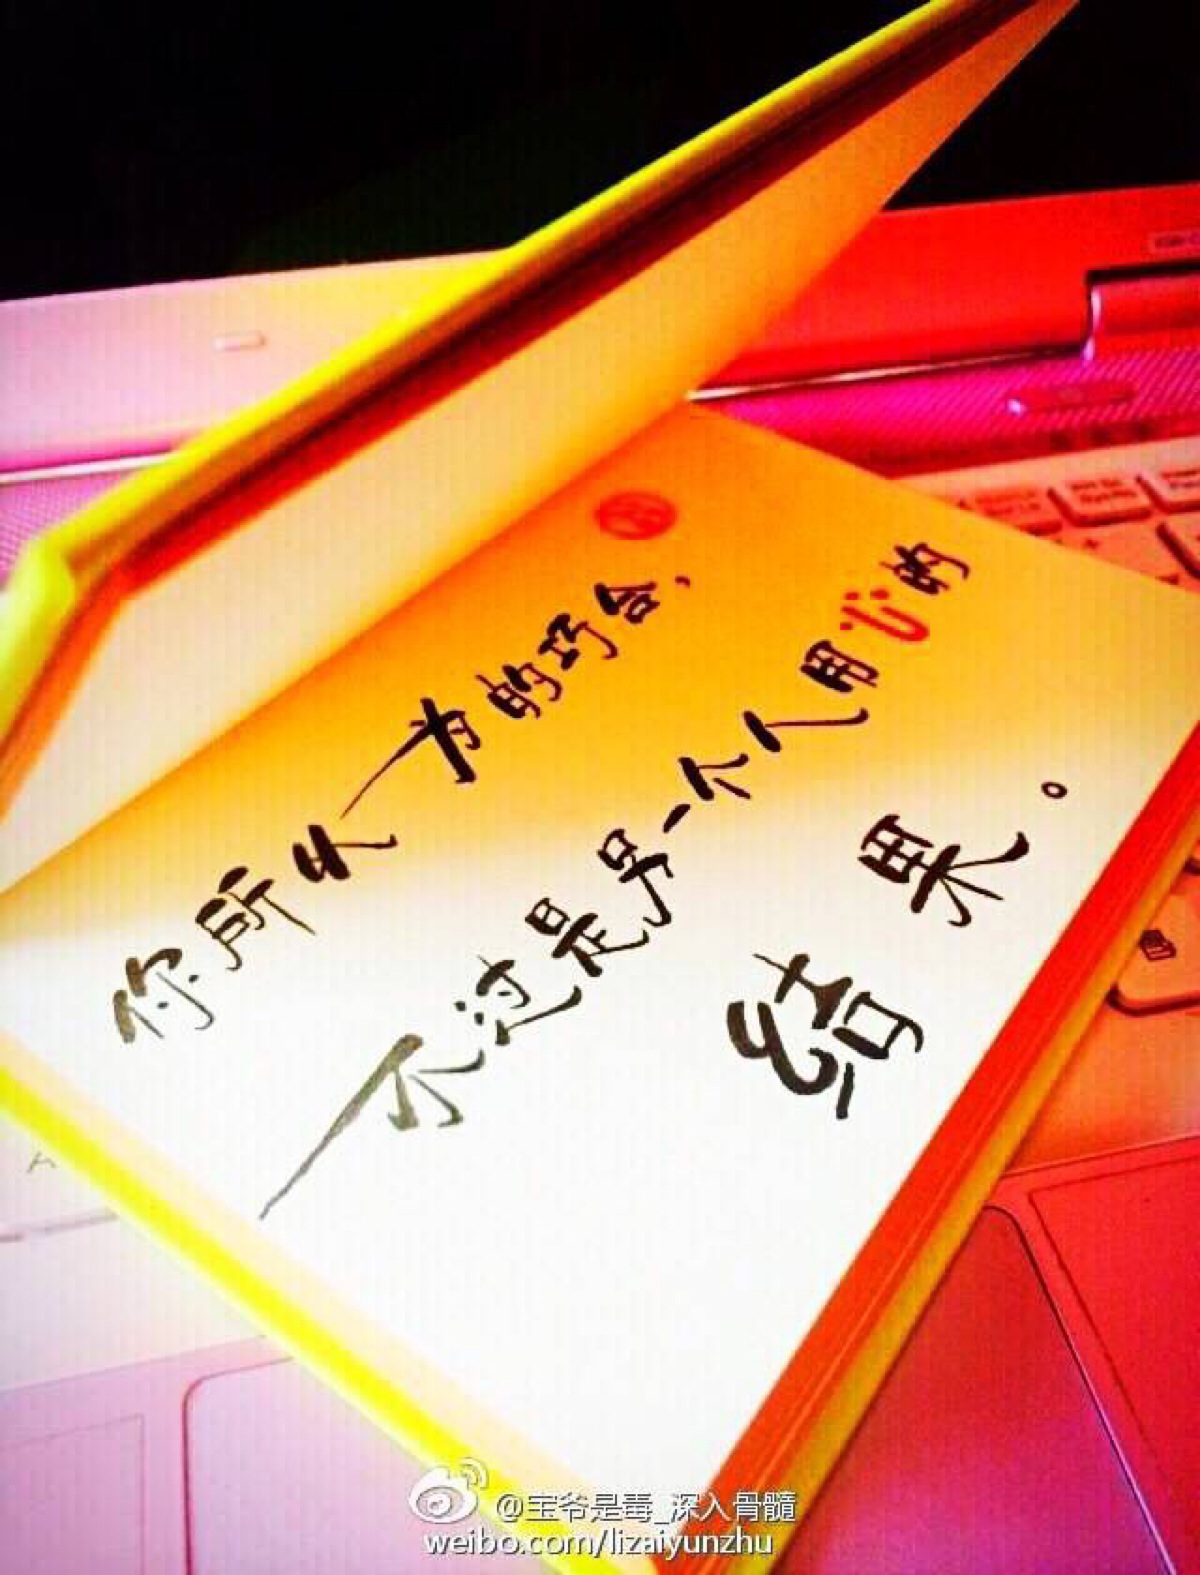 你所以为的巧合，
不过是另一个人用心的
结果。
@宝爷是毒_深入骨髓
weibo.com/lizaiyunzhu